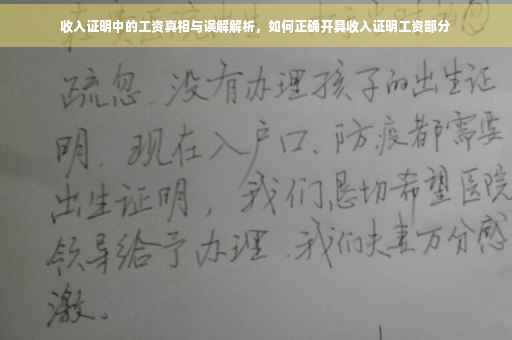 收入证明中的工资真相与误解解析，如何正确开具收入证明工资部分
疏忽、没有办理孩子的出生证
明、现在入户口、防疫都需要
出生证明，我们恳切希望医院
领导给予办理、我们夫妻万分感
激。